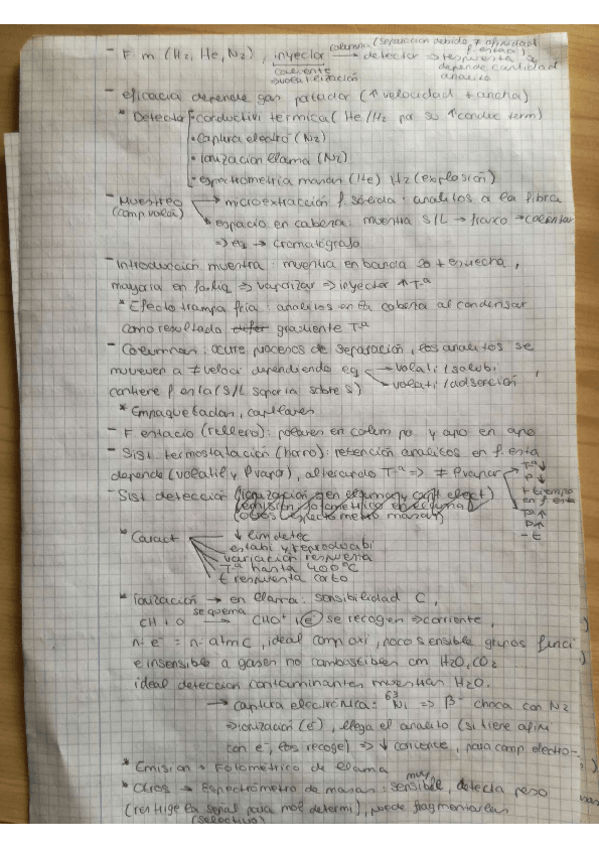 columna (separación debido ≠ afinidad f. estac)
- F. m (H2, He, N2), inyector → detector → respuesta q
caliente depende cantidad
→ volatilización analito
- eficacia depende gas portador (↑ velocidad + ancha)
* Detector - conductivi térmica (He/H2 por su ↑ conduc term)
- captura electro (N2)
- Ionización llama (N2)
- espectrometría masas (He) H2 (explosión)
- Muestreo → microextracción f. sólida: analitos a la fibra
(comp volát) → espacio en cabeza: muestra S/L → frasco → calentar
⇒ eq → cromatógrafo
- Introducción muestra: muestra en banda + estrecha,
mayoría en fa líq ⇒ vaporizar ⇒ inyector ↑ Tª
* Efecto trampa fría: analitos en la cabeza al condensar
como resultado gradiente Tª
- Columnas: ocure procesos de separación, los analitos se
mueven a ≠ veloci dependiendo eq → volati/solubi,
contiene f. esta (S/L soporta sobre S) → volati/adsorción
* Empaquetadas, capilares
- F. estacio (relleno): polares en colum po y apo en apo
- Sist termostatación (horno): retención analitos en f. esta
depende (volatil y Pvapor), alterando Tª ⇒ ≠ Pvapor
Tª ↓
P ↓
+ tiempo
en f. esta
Tª ↑
P ↑
- t
- Sist detección (ionización gen el humo y capt elect)
(emisión fotométrico de llama)
(otros espectrómetro masas)
* Caract ↓ lim detec
estabi y reproducibi
variación respuesta
Tª hasta 400ºC
t respuesta corto
* Ionización → en llama: sensibilidad C,
CH + O se quema → CHO+ + e se recogen ⇒ corriente,
nº e- = nº atm C, ideal comp oxi, poco sensible grupos funci
e insensible a gases no combustibles cm H2O, CO2
ideal detección contaminantes muestras H2O.
→ captura electrónica: 63Ni ⇒ β- choca con N2
⇒ ionización (e-), llega el analito (si tiene afini
con e-, los recoge) ⇒ ↓ corriente, para comp electro-
* Emisión → Fotométrico de llama
* Otros → Espectrómetro de masas: muy sensible, detecta peso
(restrige la señal para mol determi), puede fragmentarlas
(selectivo)